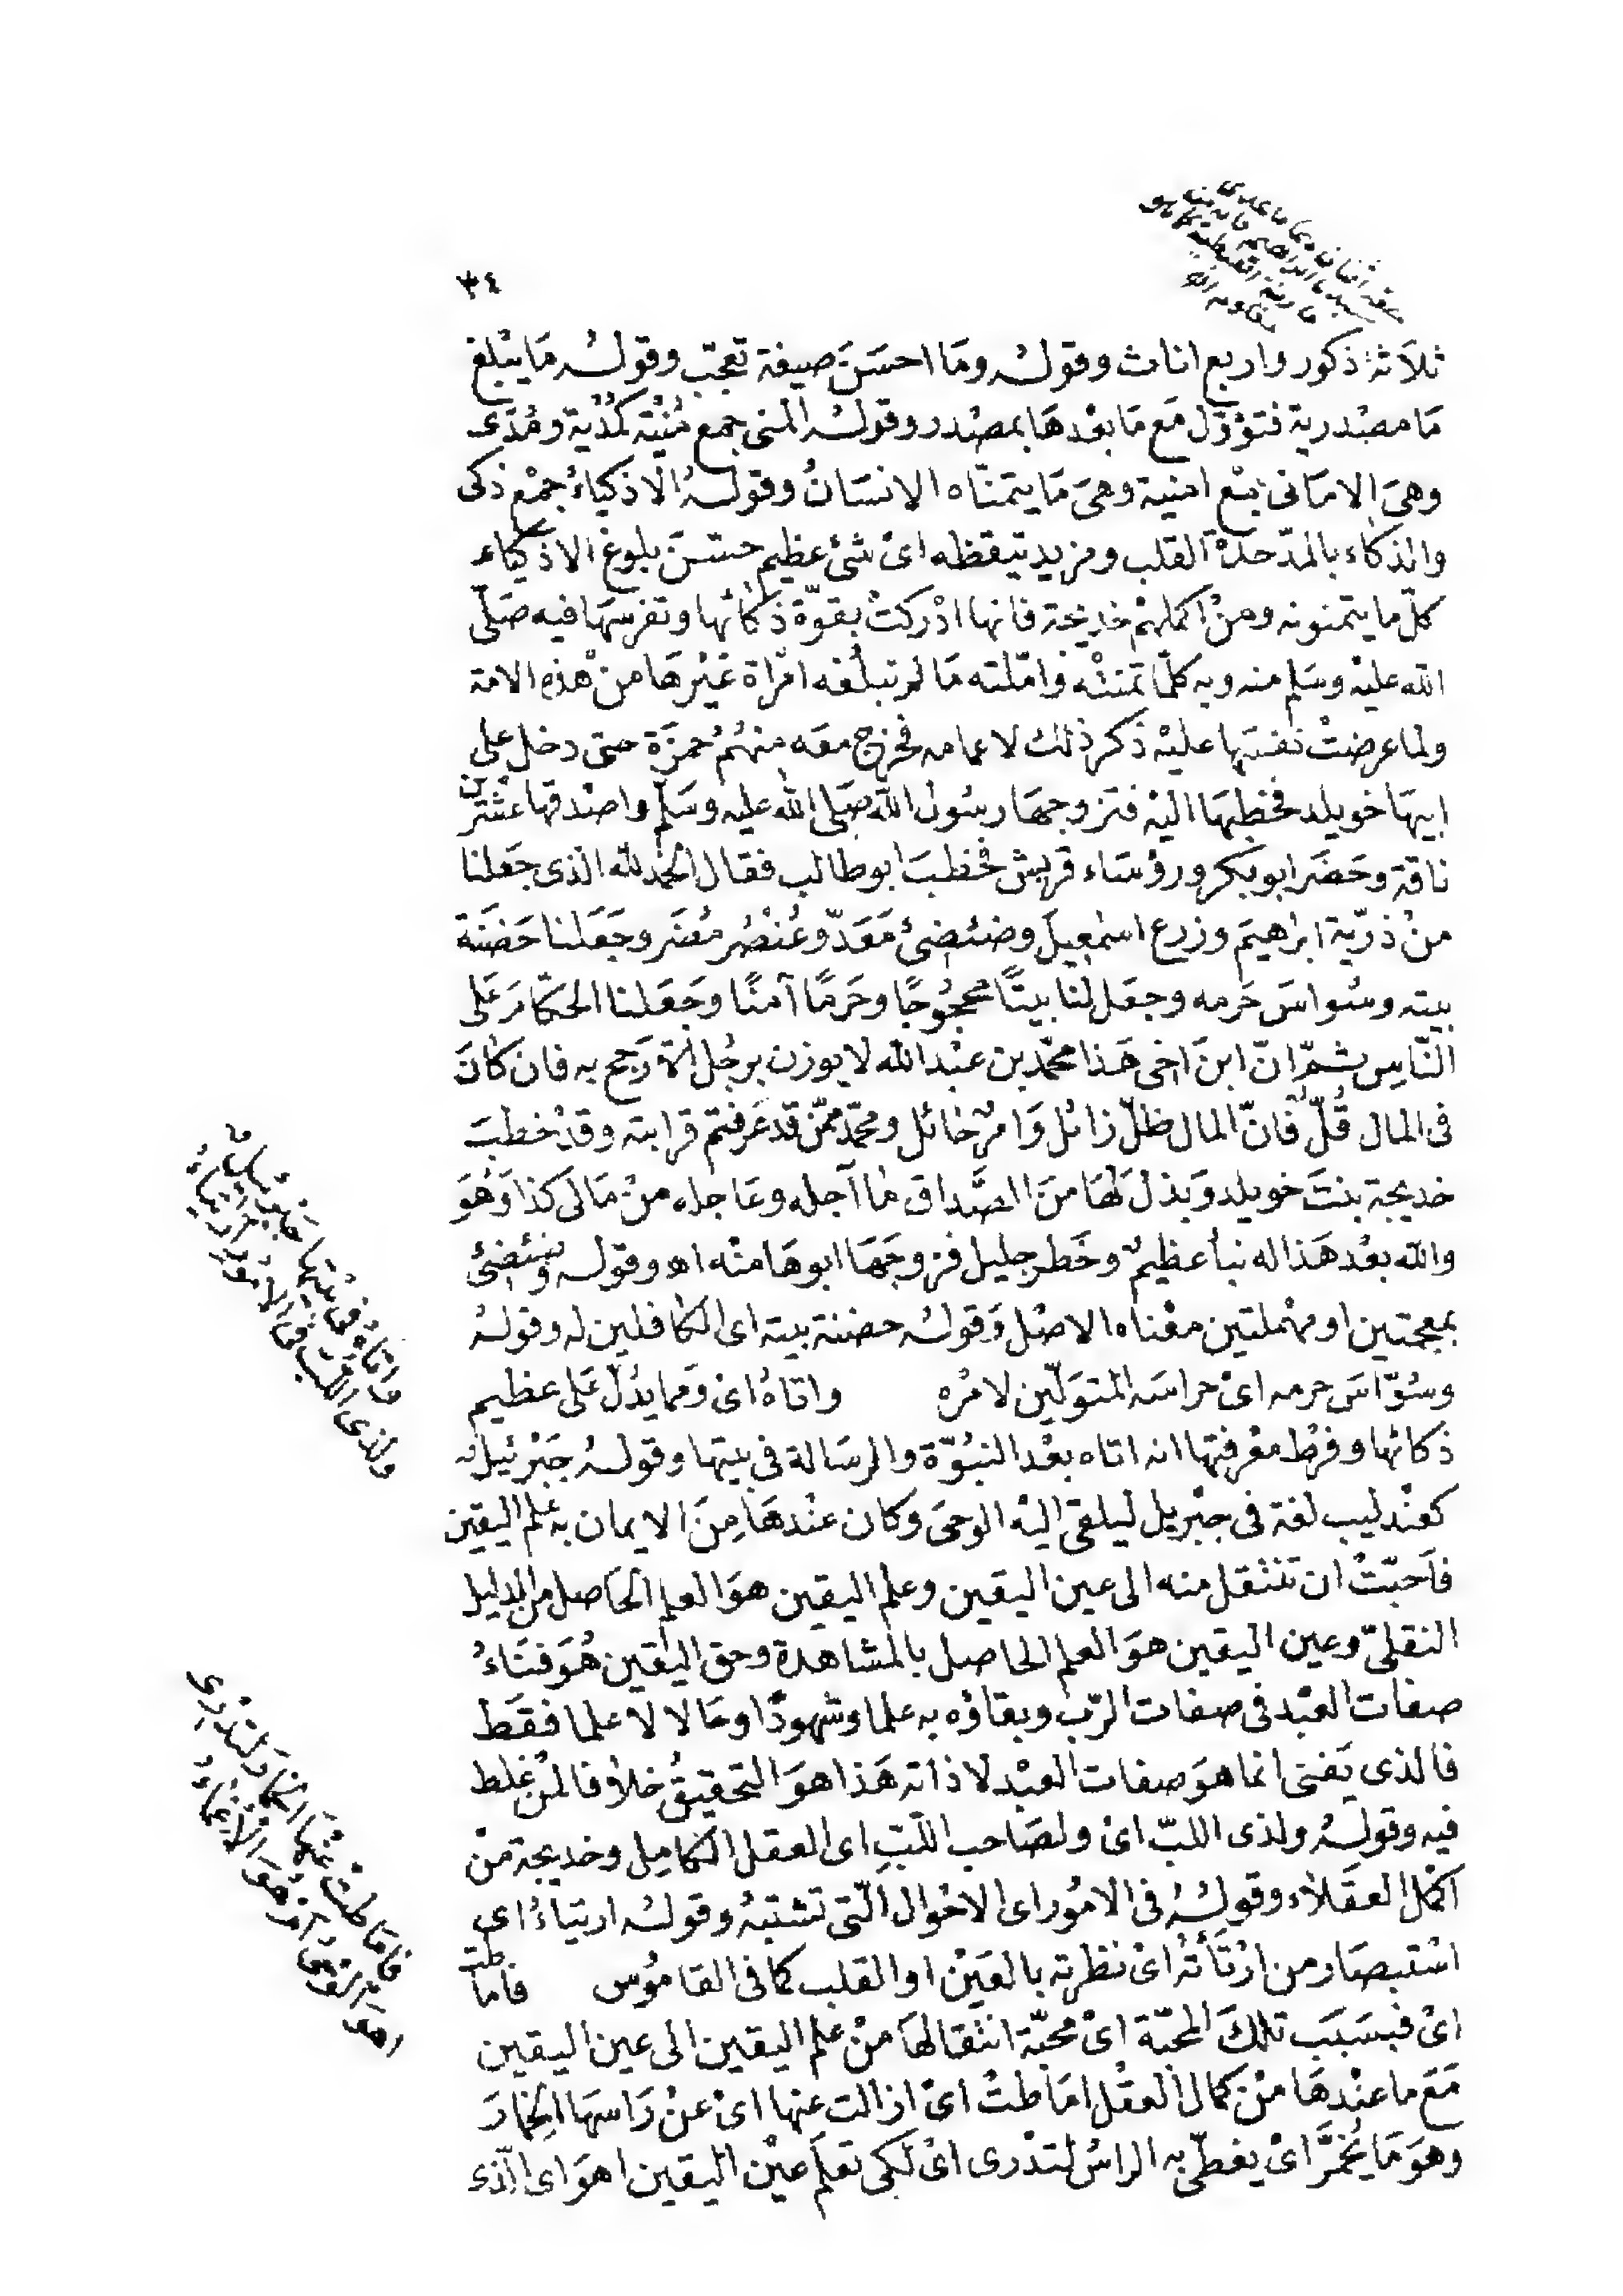 ٣٤
ثلاثة ذكور واربع اناث وقوله وما احسَنَ صيغة تعجّب وقوله مَا يبْلغ
مَا مصْدرية فتؤوّل مَع مَا بعْدهَا بمصْدر وقولهُ المنى جمع مُنْيَة كمُدْية ومُدًى
وهىَ الامَانى جمْع امنية وهىَ مَا يتمنّاه الانسَانُ وقولهُ الاذكيَاءُ جمْع ذكى
والذكاء بالمدّ حدّة القلب ومزيد تيقظه اىْ شئ عظيم حسَنَ بلوغ الاذكيَاء
كلّ ما يتمنونه ومنْ اكملهمْ خديجة فانها ادْركتْ بقوّة ذكائها وتفرسهَا فيه صَلّى
الله عليْه وسَلم منه وبه كلّما تمنتْه وامّلته مَا لم تبلغه امْراة غيْرهَا منْ هذهِ الامة
ولما عرضتْ نفسَها عليْه ذكر ذلك لاعمامه فخرج معَه منهُمْ حمزَة حتى دخل على
ابيهَا خويلد فخطبهَا اليْه فتزوجهَا رسُول الله صَلى الله عليه وسَلم واصْدقها عشْرين
ناقة وحَضَر ابو بكر ورؤسَاء قريش فخطبَ ابو طالب فقال الحمْد لله الذى جَعلنا
منْ ذرّية ابراهيمَ وزرع اسْمٰعيلَ وضئضئ مَعَدّ وعُنْصُر مُضَر وجَعَلنا حَضَنَة
بيته وسُواسَ حَرمه وجعَل لنا بيتًا محْجُوجًا وحَرمًا آمنًا وجَعَلنا الحكّامَ عَلى
النّاسِ ثمّ انّ ابنَ اخى هَذا محمّد بن عبْد الله لا يوزن برجُل الّا رَجح به فان كانَ
فى المال قُلّ فانّ المال ظلّ زائل وَامْرٌ حَائل ومحمّد ممّن قد عَرفتم قرابته وقدْ خطبَ
خديجة بنتَ خويلد وَبذلَ لهَا منَ الصَّداق مَا آجله وعَاجله منْ مَالى كذا وَهْوَ
والله بعْد هَذا له نبأ عظيمٌ وخَطر جليل فزوجَهَا ابوهَا منْه اهـ وقوله وضئضئ
بمعجمتين او مهْملتين معْناه الاصْل وَقوله حضنة بيته اى الكافلين له وقولهُ
وسُوّاسَ حرمه اىْ حراسَه المتوَلّين لامْره واتاهُ اىْ وَمما يدُلّ عَلى عظيم
ذكائها وفرْط معْرفتها انه اتاه بعْد النبُوّة والرسَالة فى بيتها وقولهُ جَبْرئيل
كعنْدليب لغة فى جبْريل ليلقىَ اليْه الوحىَ وكان عنْدهَا مِنَ الايمان به علم اليقين
فاَحبّتْ ان تنتقل منه الى عين اليقين وعلم اليقين هوَ العلم الحَاصل من الدليل
النقلىّ وعين اليقين هوَ العلم الحاصل بالمشاهدة وحق اليقين هُوَ فنَاءُ
صفات العبْد فى صفات الرّبّ وبقاؤه به علما وشهودًا وحَالا لا علما فقَط
فالذى يَفنى انما هوَ صفات العبْد لا ذاته هَذا هوَ التحقيقُ خلافا لمنْ غلط
فيه وقولهُ ولذى اللبّ اىْ ولصَاحب اللّبّ اى العقل الكامِل وخديجة منْ
اكمْل العقلاء وقولهُ فى الامُور اى الاحْوال الّتى تشتبهُ وقوله ارتيَاءُ اى
اسْتبصَار من ارْتأَتُه اىْ نظرته بالعَيْن او القلب كما فى القامُوس فاماطت
اىْ فبسَبَب تلكَ المحَبّة اىْ محَبّة انتقالهَا منْ علم اليقين الى عين اليقين
مَعَ ما عنْدهَا منْ كمال العقْل امَاطتْ اىْ ازالت عنها اىْ عنْ رَاسهَا الخمَارَ
وهوَ مَا يُخَمَّرُ اىْ يغطّى به الراسُ لتدْرى اىْ لكى تعْلم عيْن اليقين اهوَ اى الّذى
واتاهُ فى بيْتها جَبْرئيل
ولذى اللّبّ فى الامُور ارتيَاءُ
فامَاطتْ عنْهَا الخمَارَ لتدْرى
اهوَ الوَحىُ امْ هُوَ الاغمَاءُ